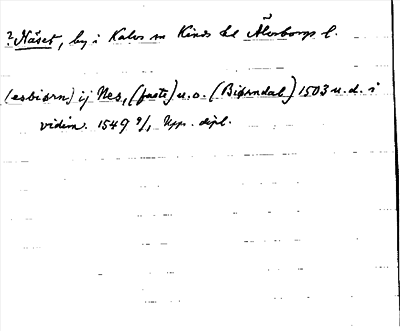 ? Näset, by i Kalvs sn Kinds hd Älvsborgs l.
(esbiørn) ij Nes, (faste) u. o. (Biørndal) 1503 u. d. i
vidim. 1549 9/1 Upp. dipl.